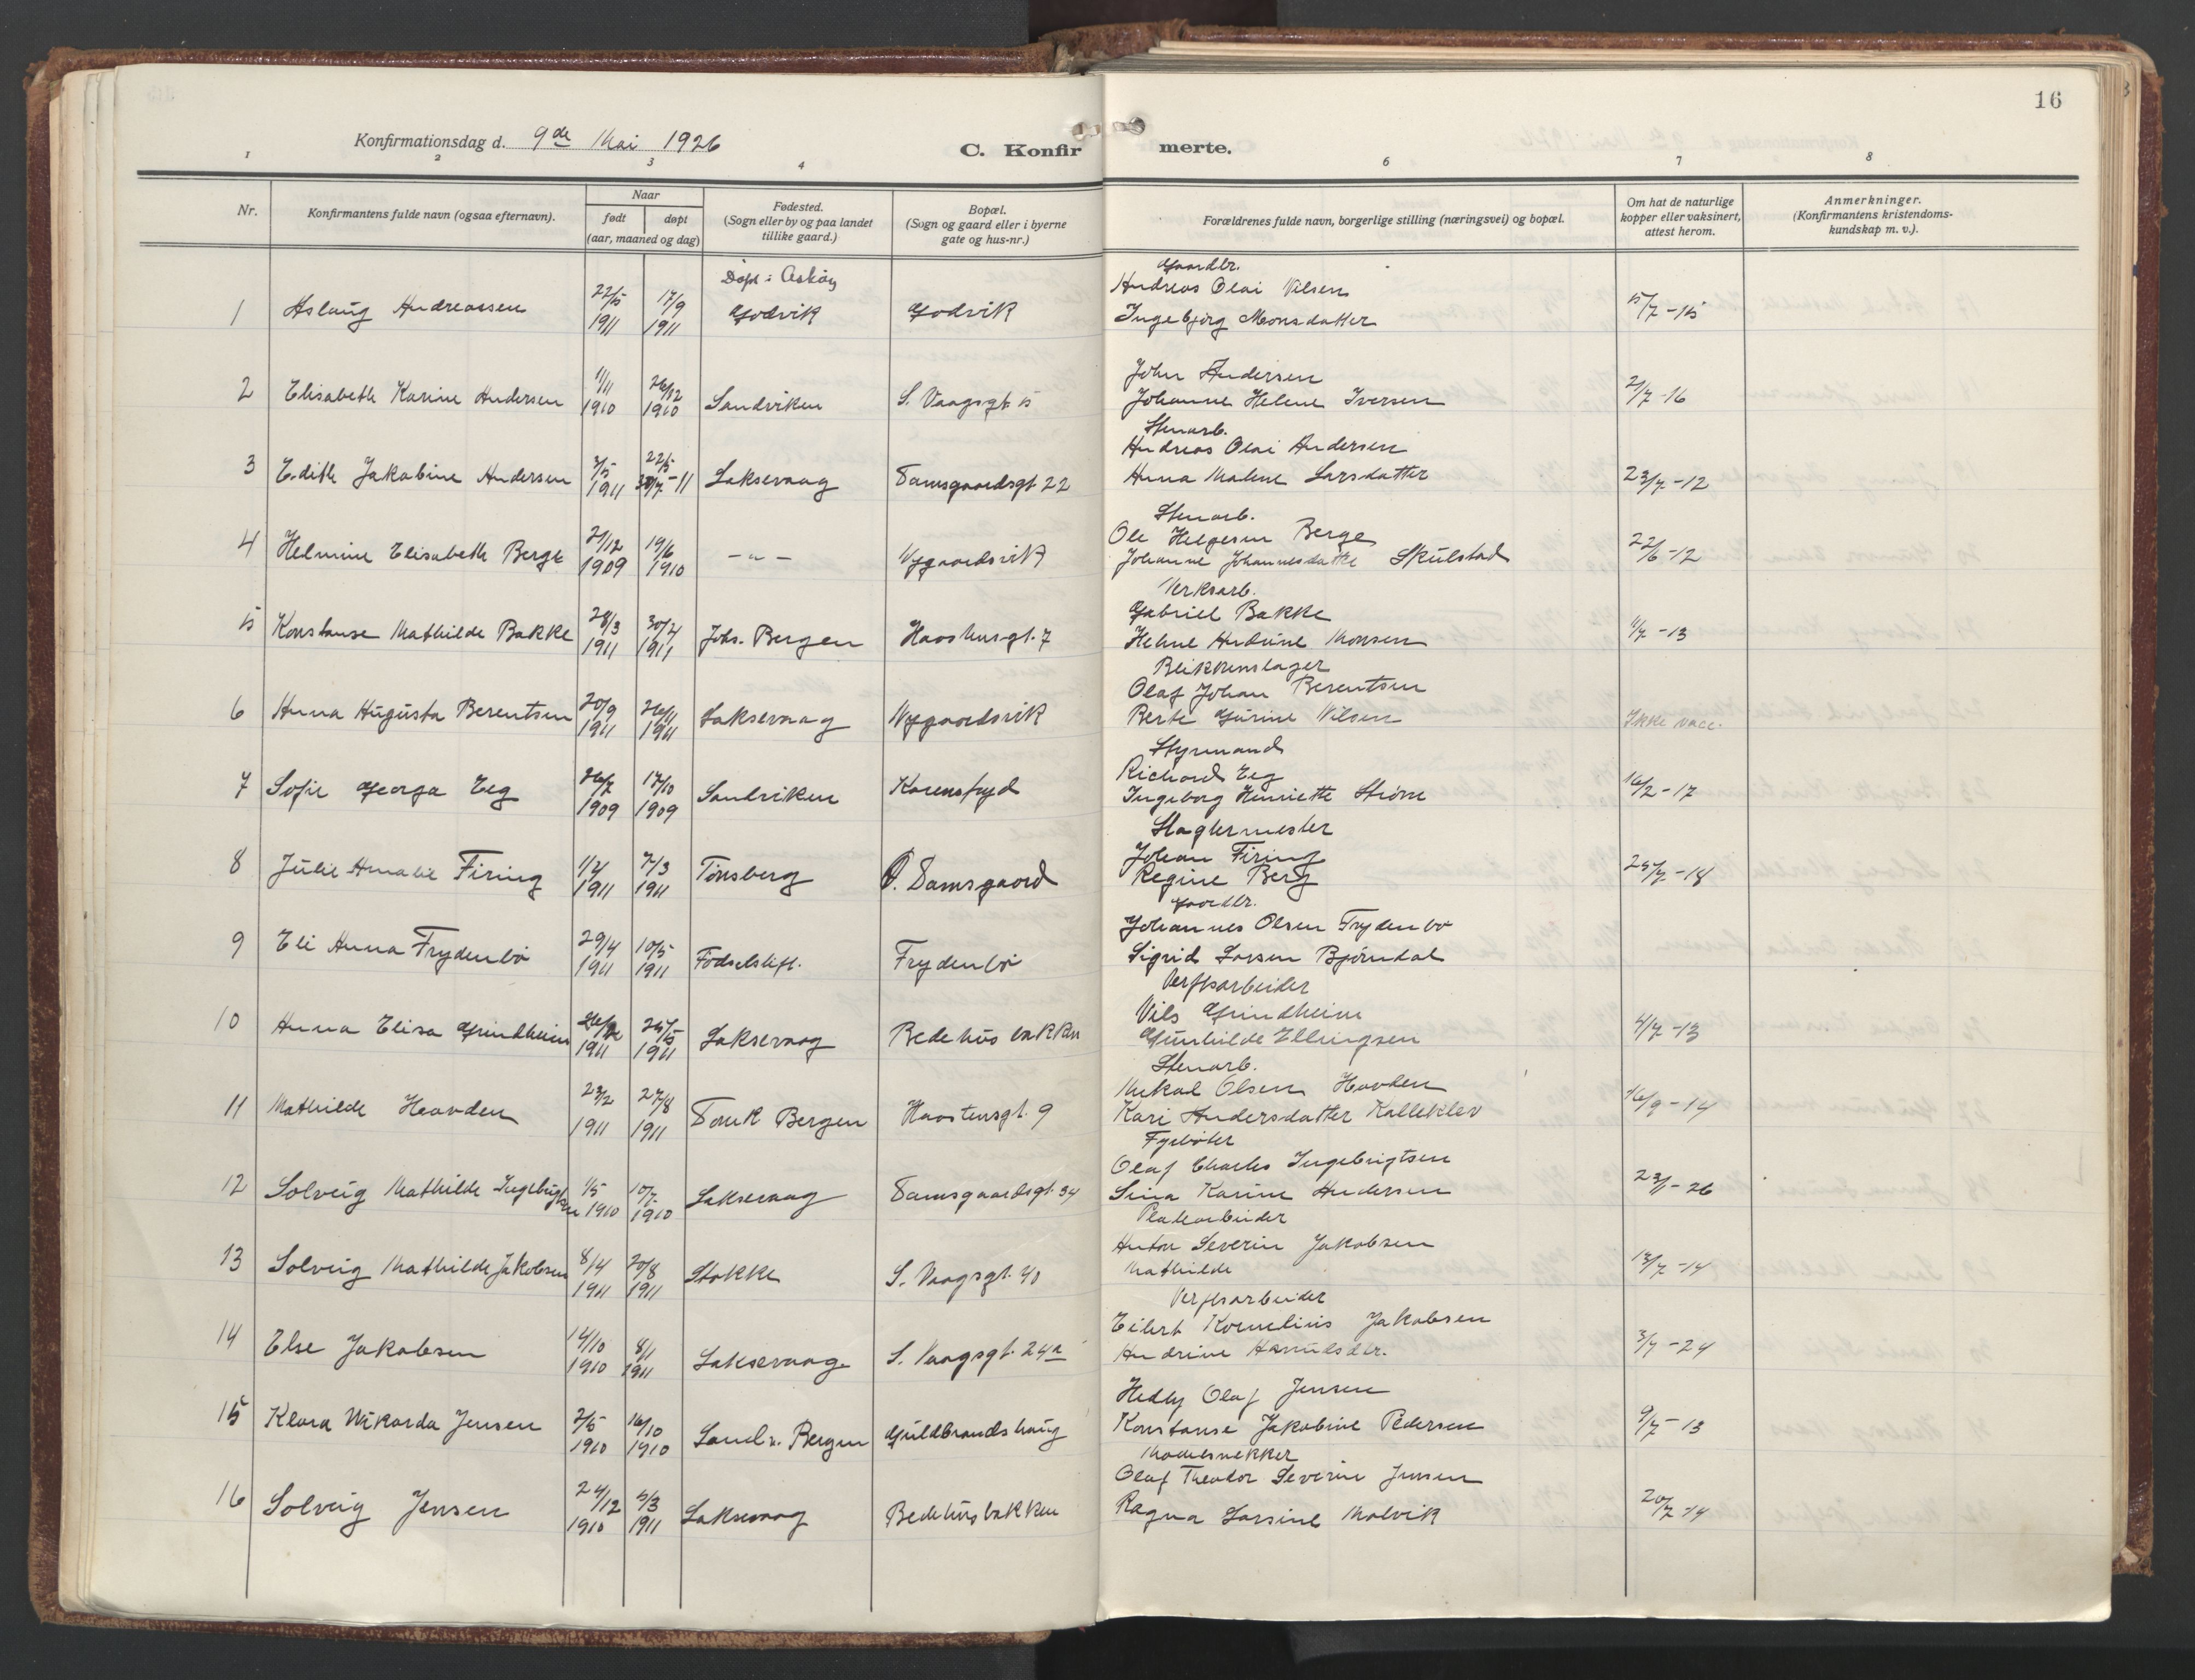 16
Konfirmationsdag d. 9de Mai 1926
C. Konfirmerte.
1 2 3 4 6 7 8
Nr.
Konfirmantens fulde navn (ogsaa efternavn).
Naar
født døpt
(aar, maaned og dag)
Fødested.
(Sogn eller by og paa landet
tillike gaard.)
Bopæl.
(Sogn og gaard eller i byerne
gate og hus-nr.)
Forældrenes fulde navn, borgerlige stilling (næringsvei) og bopæl.
Om hat de naturlige
kopper eller vaksinert,
attest herom.
Anmerkninger.
(Konfirmantens kristendoms-
kundskap m. v.).
Døpt i Askøy Gaardbr.
Andreas Olai Nilsen
1 Aslaug Andreassen 22/5 1911 17/9 1911 Godvik Godvik Ingebjørg Monsdatter 15/7-15
John Andersen
2 Elisabeth Karine Andersen 11/11 1910 26/12 1910 Sandviken S. Vaagsgt 15 Johanne Helene Iversen 2/7-16
Stenarb.
Andreas Olai Andersen
3 Edith Jakobine Andersen 3/5 1911 22/5 30/7-11 Laksevaag Damsgaardsgt 22 Anna Malene Larsdatter 23/7-12
Stenarb.
Ole Helgesen Berge
4 Helmine Elisabeth Berge 21/12 1909 19/6 1910 -"- Nygaardsvik Johanne Johannesdatter Skulstad 22/6-12
Verksarb.
Gabriel Bakke
5 Konstanse Mathilde Bakke 28/3 1911 30/4 1911 Johs. Bergen Haastensgt. 7 Helene Andrine Monsen 11/7-13
Blikkenslager
Olaf Johan Berentsen
6 Anna Augusta Berentsen 20/9 1911 26/11 1911 Laksevaag Nygaardsvik Berte Gurine Nilsen Ikke vacc.
Styrmand
Richard Eeg
7 Sofie Georga Eeg 26/7 1909 17/10 1909 Sandviken Karensfryd Ingeborg Henriette Strøm 16/2-17
Slagtermester
Johan Firing
8 Julie Amalie Firing 1/2 1911 7/3 1911 Tønsberg Ø. Damsgaard Regine Berg 25/7-18
Gaardbr.
Johannes Olsen Frydenbø
9 Eli Anna Frydenbø 29/4 1911 10/5 1911 Fødselstift. Frydenbø Sigrid Larsen Bjørndal
Verftsarbeider
Nils Grindheim
10 Anna Elisa Grindheim 1911 25/5 1911 Laksevaag Bedehusbakken Gunhilde Ellingsen 4/7-13
Stenarb.
Mikal Olsen Hovden
11 Mathilde Hovden 23/2 1911 27/8 1911 Domk Bergen Haastensgt. 9 Kari Andersdatter Kalleklev 16/9-14
Fyrbøter
Olaf Charles Ingebrigtsen
12 Solveig Mathilde Ingebrigtsen 1/5 1910 10/7 1910 Laksevaag Damsgaardsgt. 34 Sina Karine Andersen 23/1-26
Platearbeider
Anton Severin Jakobsen
13 Solveig Mathilde Jakobsen 8/4 1911 20/8 1911 Stokke S. Vaagsgt. 40 Mathilde 13/7-14
Verftsarbeider
Eilert Kornelius Jakobsen
14 Else Jakobsen 14/10 1910 8/1 1911 Laksevaag S. Vaagsgt. 24a Andrine 3/7-24
Hedly Olaf Jensen
15 Klara Vikarda Jensen 2/5 1910 16/10 1910 Sandv. Bergen Guldbrandshaug Konstanse Jakobine Pedersen 9/7-13
Modelsnekker
Olaf Theodor Severin Jensen
16 Solveig Jensen 24/12 1910 5/3 1911 Laksevaag Bedehusbakken Ragna Larsine Malvik 20/7-14